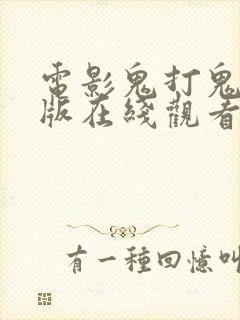 電影鬼打鬼
版在綫觀看
有一種回憶叫